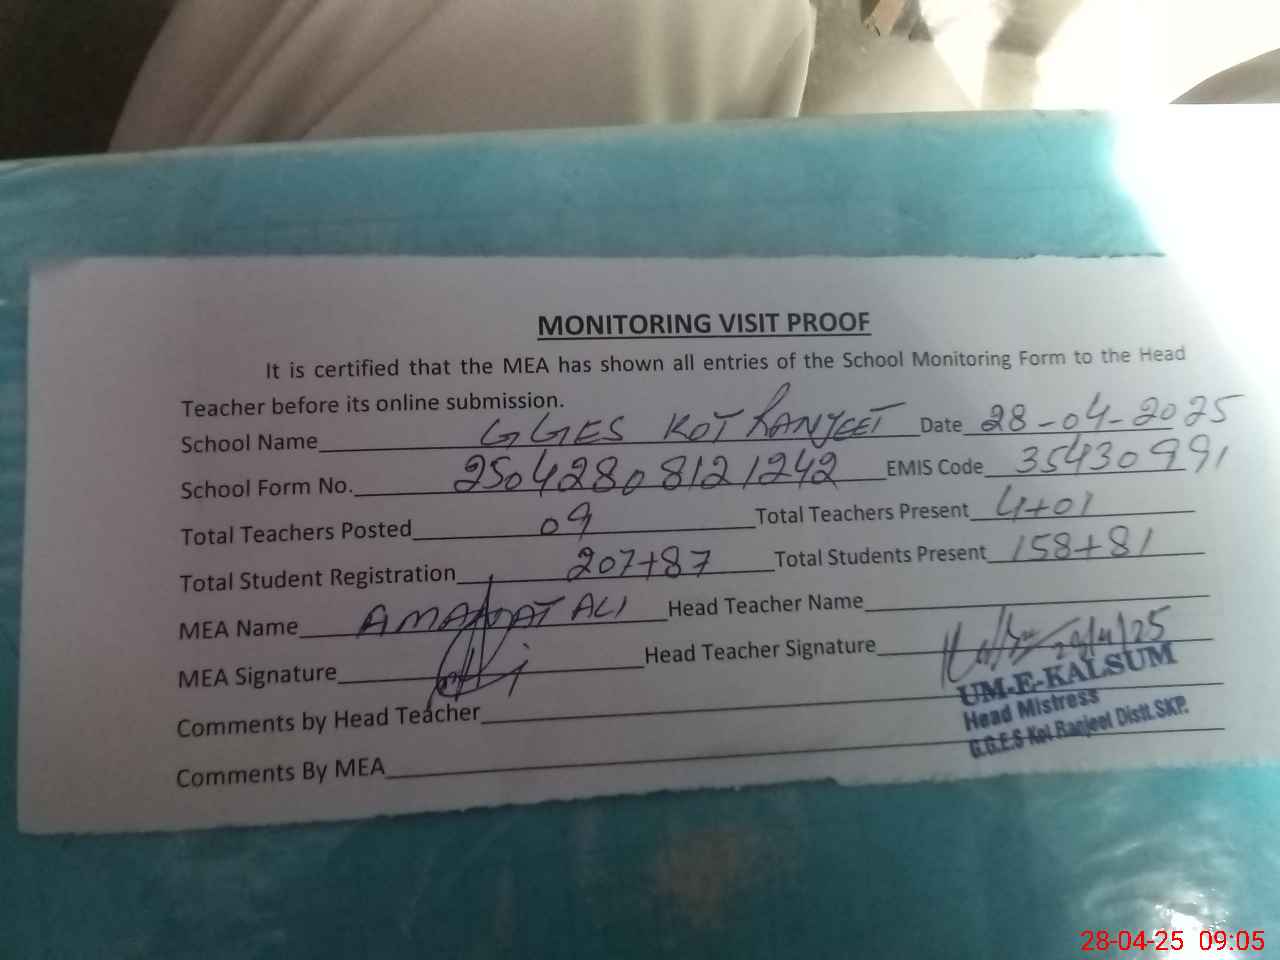 MONITORING VISIT PROOF
It is certified that the MEA has shown all entries of the School Monitoring Form to the Head
Teacher before its online submission.
School Name GGES KOT RANJEET Date 28-04-2025
School Form No. 25042808121242 EMIS Code 35430991
Total Teachers Posted 09 Total Teachers Present 4+01
Total Student Registration 207+87 Total Students Present 158+81
MEA Name AMANAT ALI Head Teacher Name
MEA Signature Head Teacher Signature
UM-E-KALSUM
Head Mistress
G.G.E.S Kot Ranjeet Distt. SKP.
Comments by Head Teacher
Comments By MEA
28-04-25 09:05